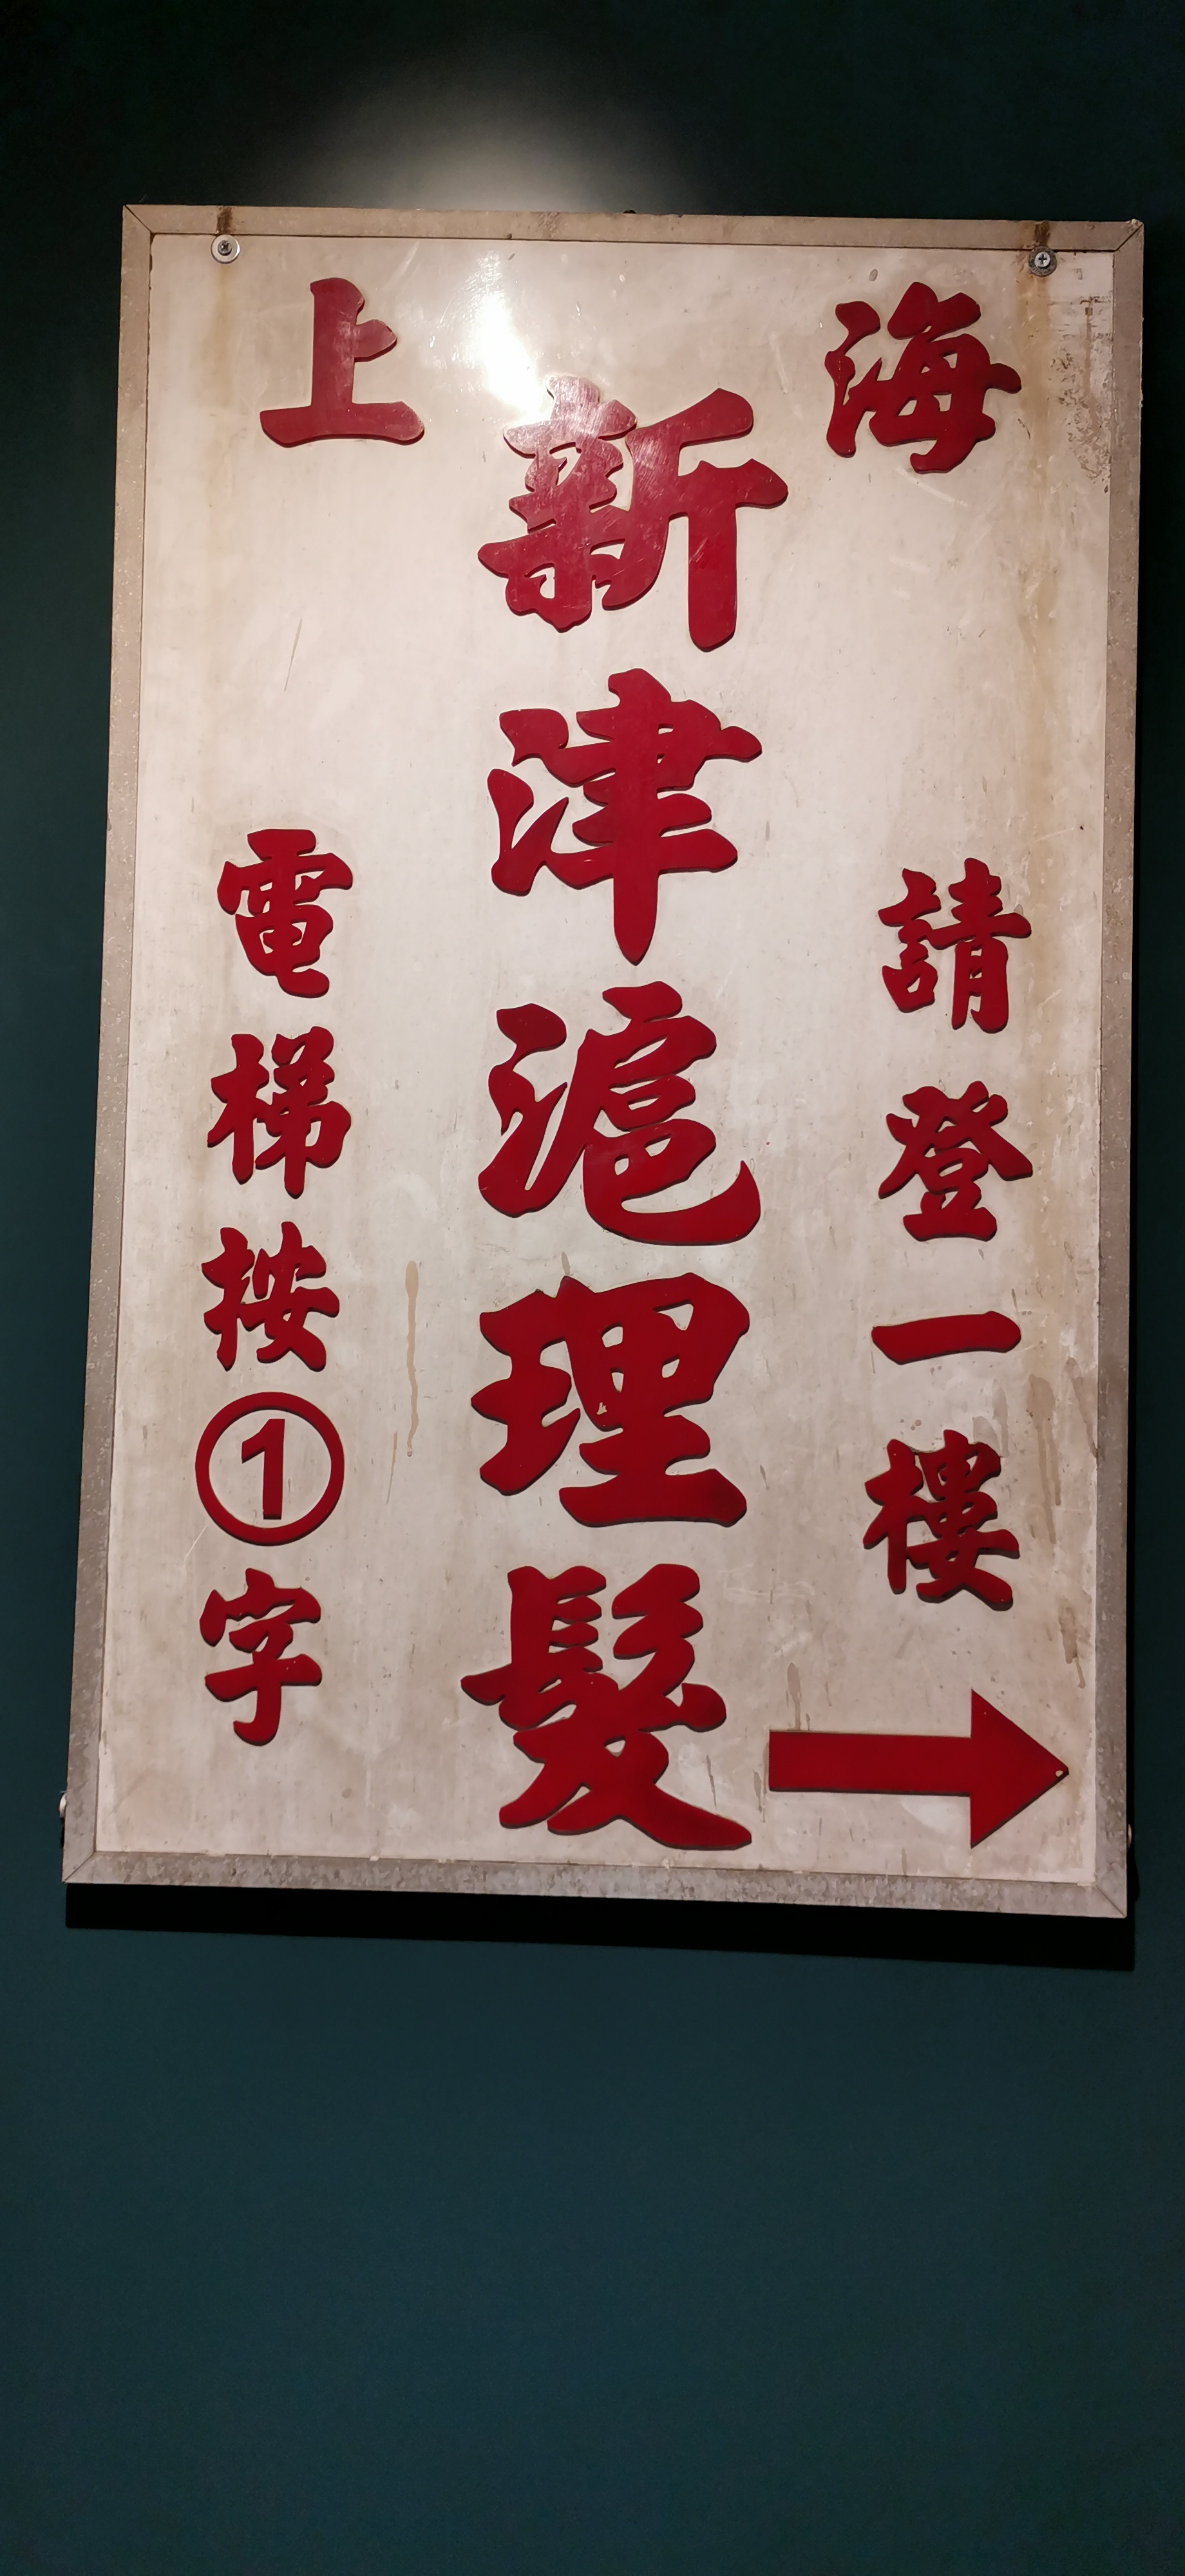 上海
新津滬理髮
請登一樓
電梯按①字